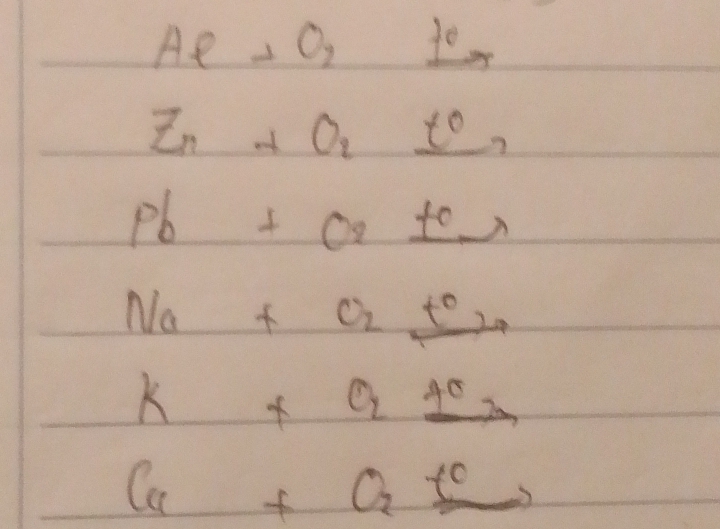 Al + O₂ t⁰→
Zn + O₂ t⁰→
Pb + O₂ t⁰→
Na + O₂ t⁰→
K + O₂ t⁰→
Ca + O₂ t⁰→